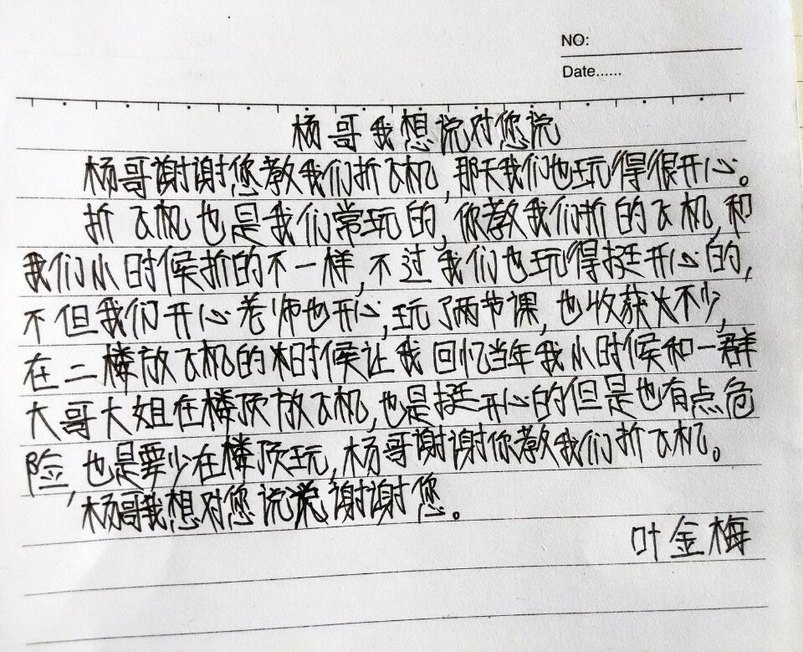 NO:
Date......
杨哥我想说对您说
杨哥谢谢您教我们折飞机,那天我们也玩得很开心。
折飞机也是我们常玩的,你教我们折的飞机,和
我们小时候折的不一样,不过我们也玩得挺开心的,
不但我们开心老师也开心,玩了两节课,也收获不少,
在二楼放飞机的时候让我回忆当年我小时候和一群
大哥大姐在楼顶放飞机,也是挺开心的但是也有点危
险,也是要少在楼顶玩,杨哥谢谢你教我们折飞机。
杨哥我想对您说谢谢您。
叶金梅